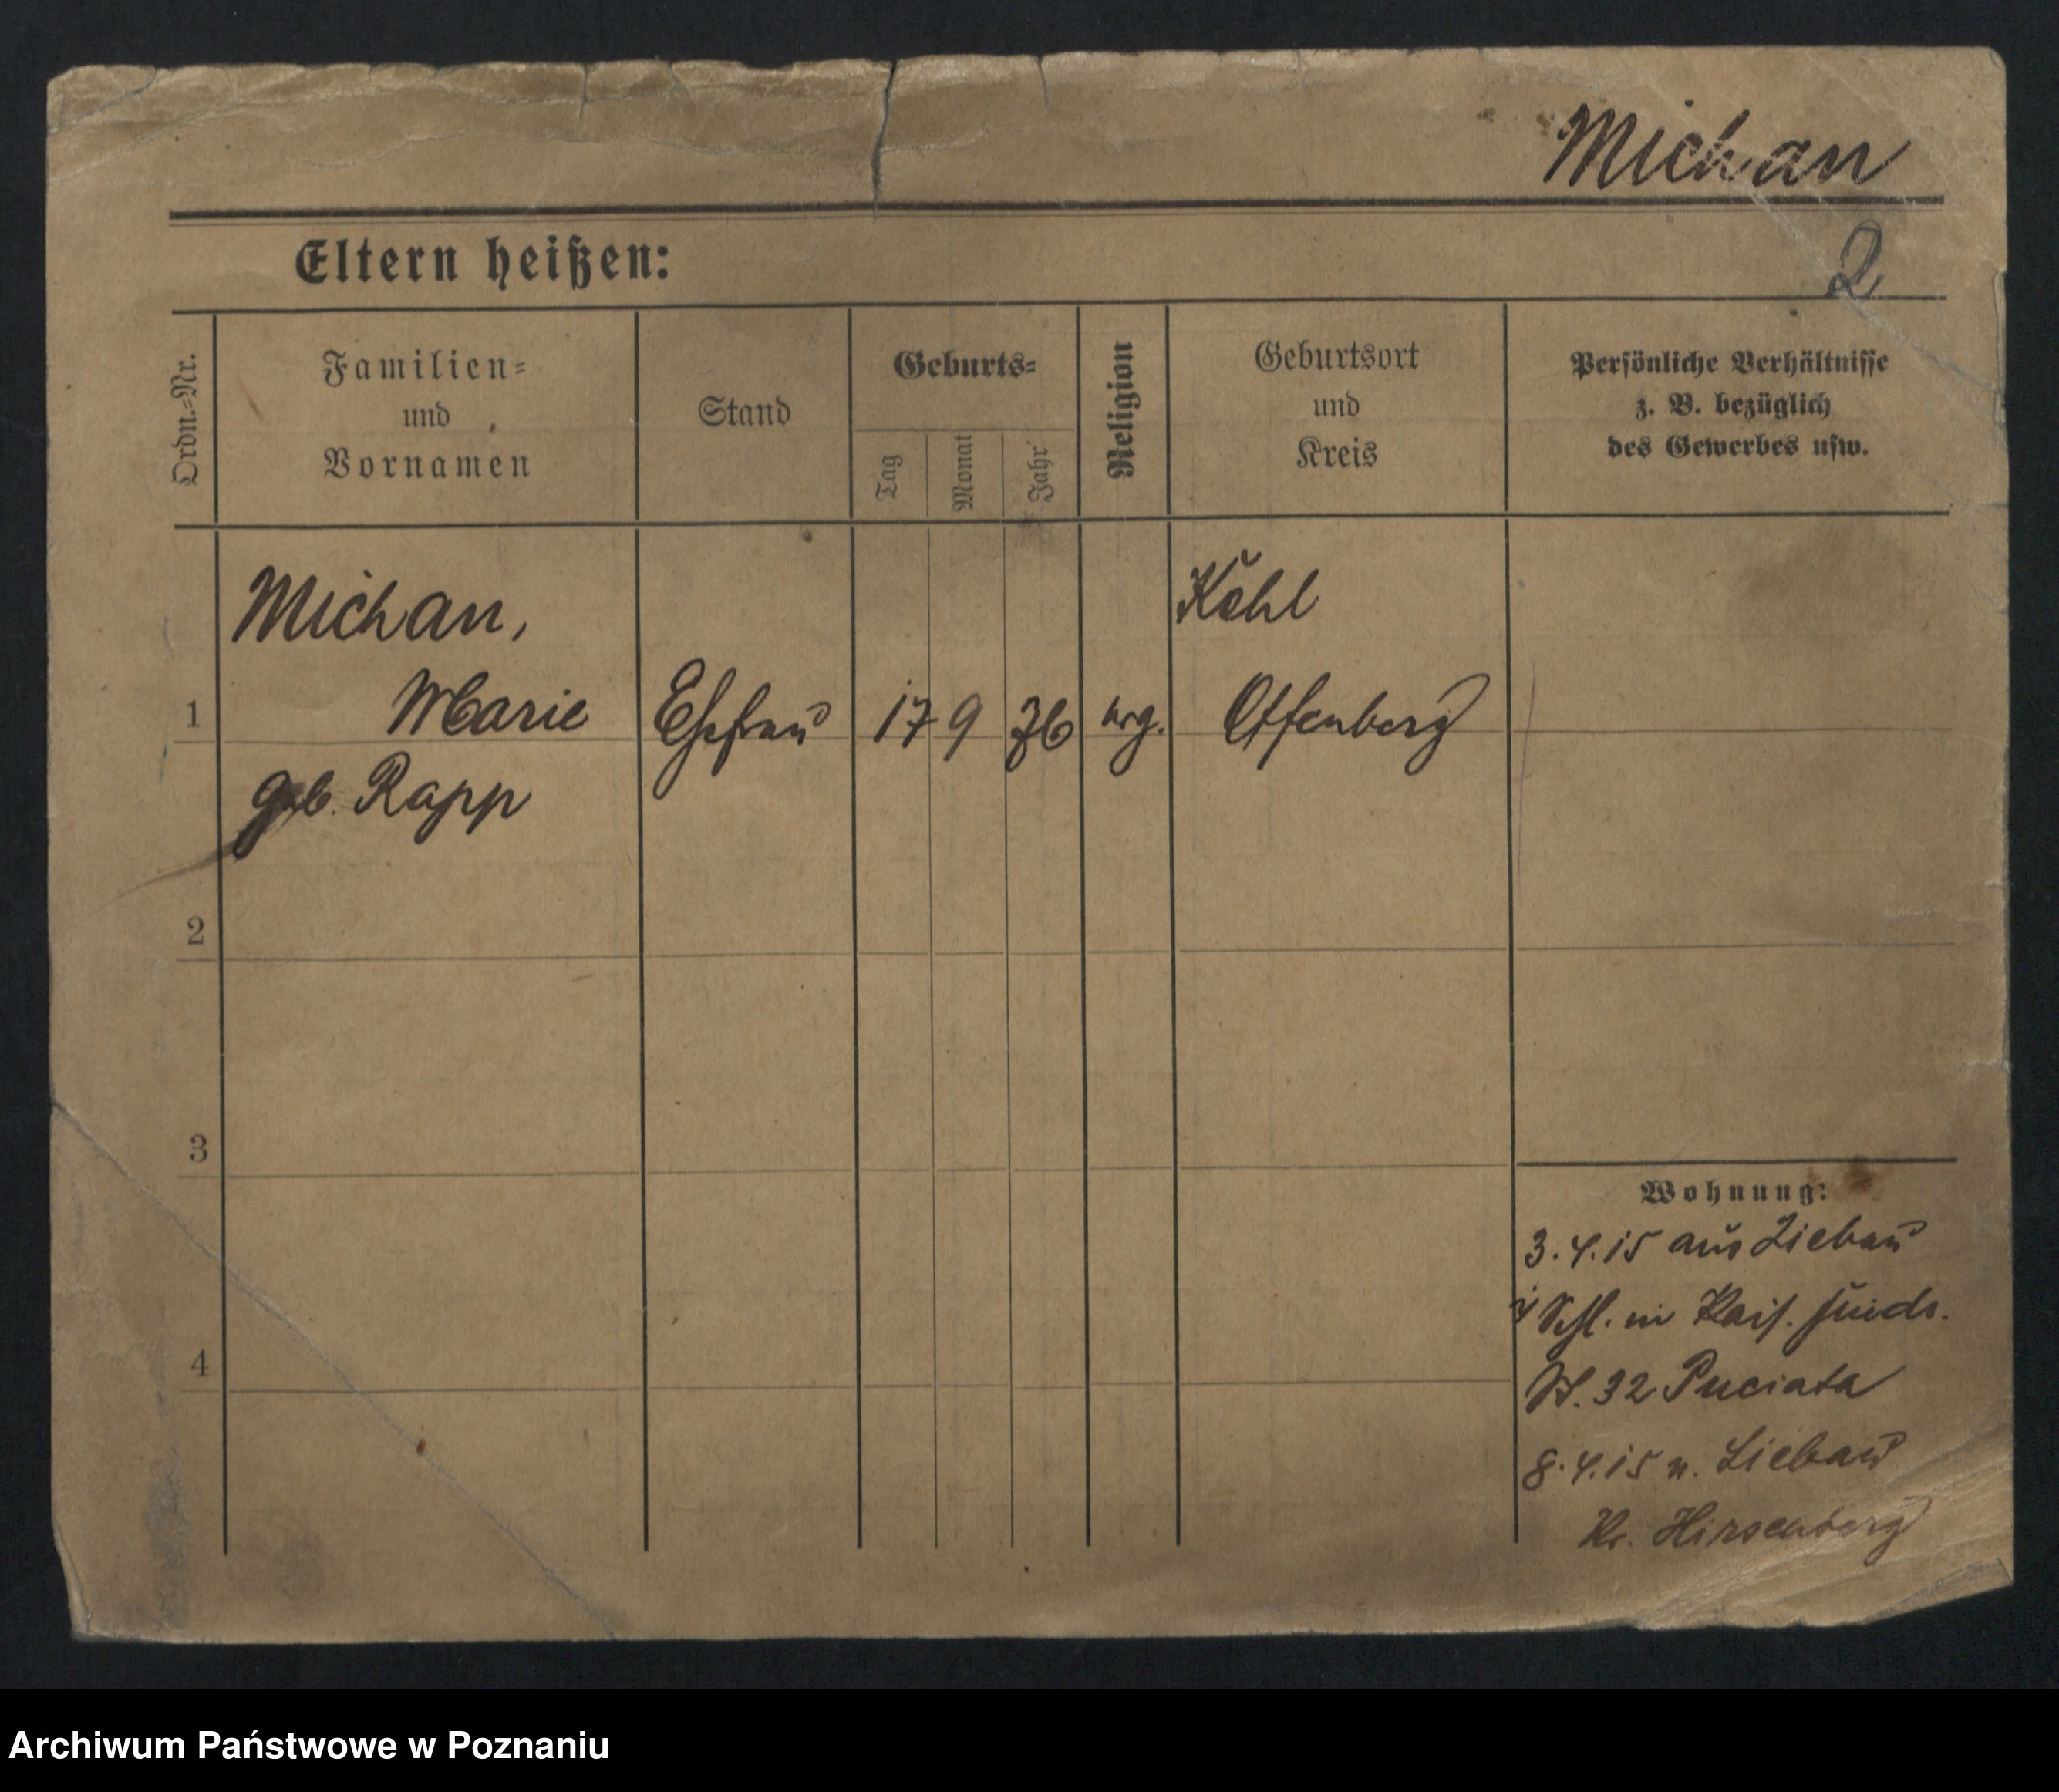 Michan
Eltern heißen:
2
Ordn.=Nr.
Familien=
und
Vornamen
Stand
Geburts=
Tag
Monat
Jahr
Religion
Geburtsort
und
Kreis
Persönliche Verhältnisse
z. B. bezüglich
des Gewerbes usw.
Michan,
Kehl
1
Marie
Ehefrau
17
9
76
Offenberg
geb. Rapp
2
3
4
Wohnung:
3.4.15 aus Liebau
i/ Schl. in
32 Puciata
8.4.15 n. Liebau
Kr. Hirsenberg
Archiwum Państwowe w Poznaniu